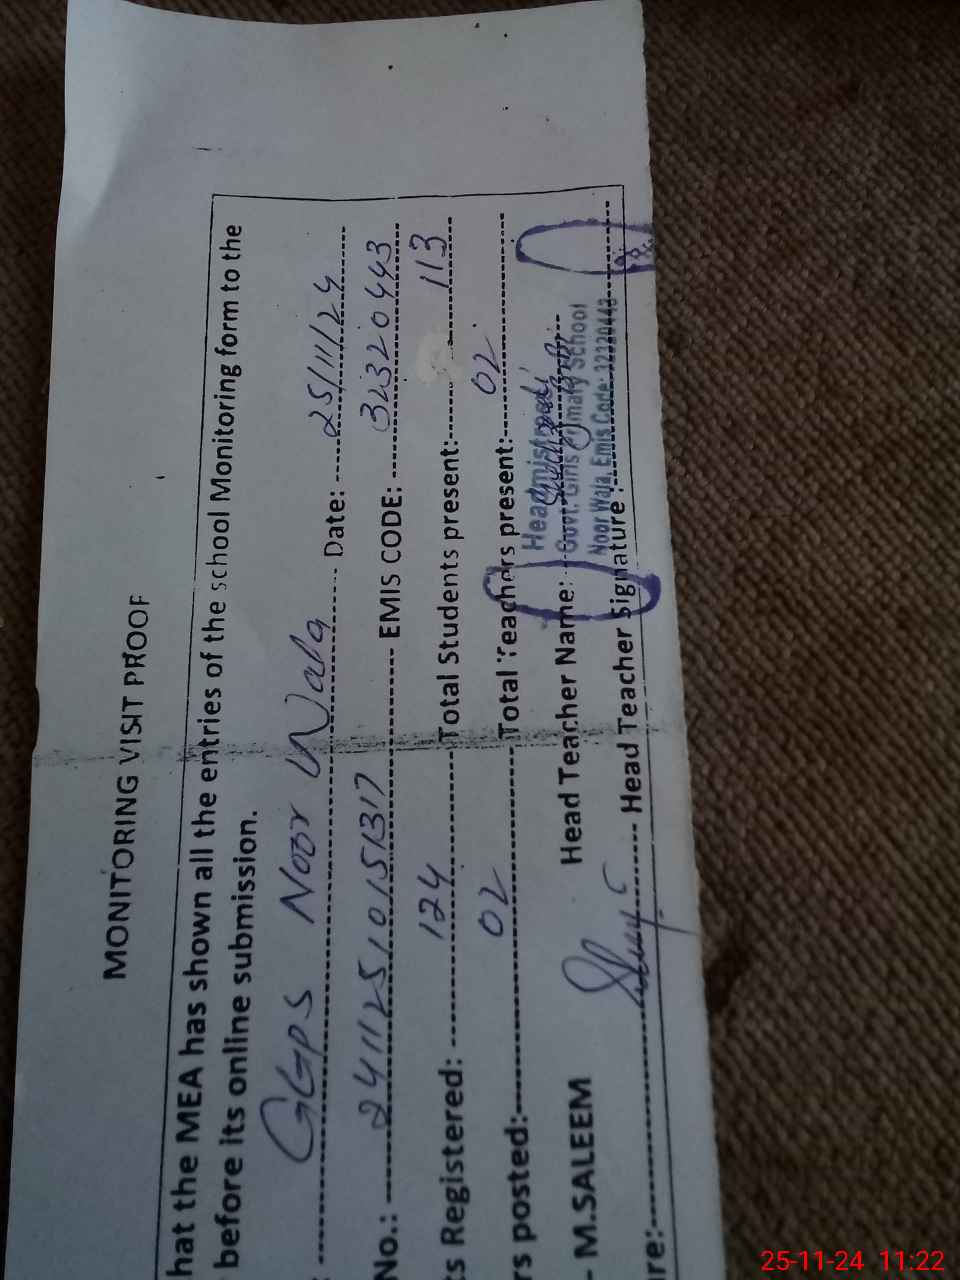 MONITORING VISIT PROOF
hat the MEA has shown all the entries of the school Monitoring form to the
before its online submission.
: GGPS Noor Wala Date: 25/11/24
No.: 24112510151317 EMIS CODE: 32320443
ts Registered: 124 Total Students present: 113
rs posted: 02 Total Teachers present: 02
- M.SALEEM Head Teacher Name:
Headmistress
Govt. Girls Primary School
Noor Wala, Emis Code: 32320443
re: Head Teacher Signature :
25-11-24 11:22